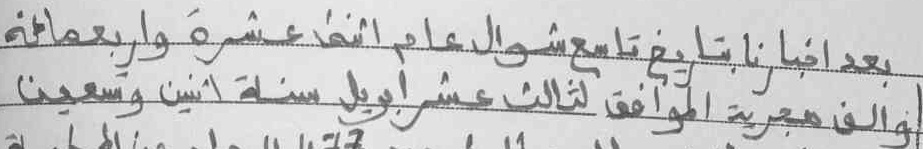 بعد اخبارنا بتاريخ تاسع شوال عام اثنتا عشرة واربعمائة
والف هجرية الموافق لثالث عشر ابريل سنة اثنين وتسعين